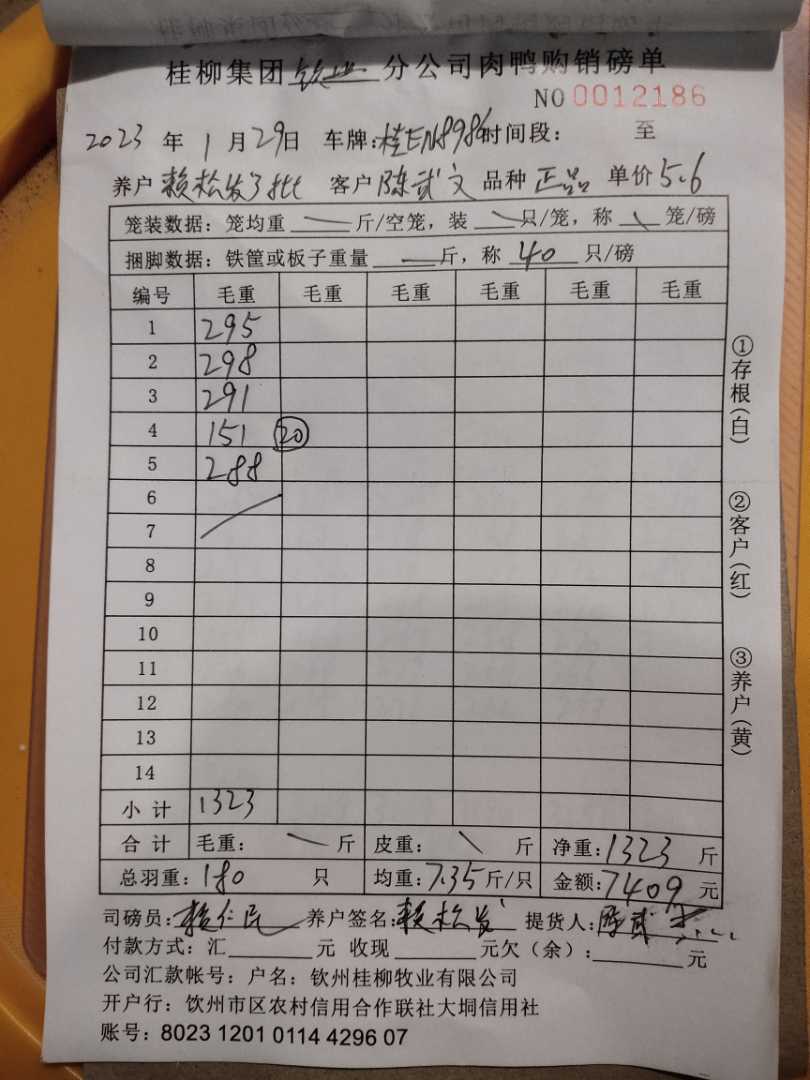 桂柳集团钦业分公司肉鸭购销磅单
NO 0012186
2023年1月29日 车牌:桂EN8986时间段: 至
养户赖松发3批 客户陈武文 品种正品 单价5.6
笼装数据: 笼均重 斤/空笼, 装 只/笼, 称 笼/磅
捆脚数据: 铁筐或板子重量 斤, 称 40 只/磅
编号 毛重 毛重 毛重 毛重 毛重 毛重
1 295
2 298
3 291
4 151 20
5 288
6
7
8
9
10
11
12
13
14
小计 1323
合计 毛重: 斤 皮重: 斤 净重:1323 斤
总羽重:180 只 均重:7.35斤/只 金额:7409元
司磅员:赖仁民 养户签名:赖松发 提货人:陈武
付款方式: 汇 元 收现 元欠(余): 元
公司汇款帐号: 户名: 钦州桂柳牧业有限公司
开户行: 饮州市区农村信用合作联社大垌信用社
账号: 8023 1201 0114 4296 07
①存根(白)
②客户(红)
③养户(黄)